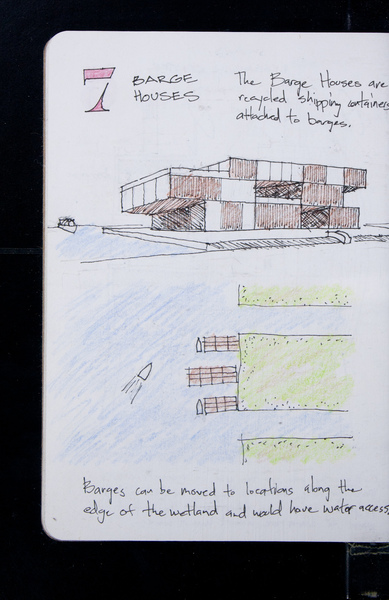 7
BARGE
HOUSES
The Barge Houses are
recycled shipping containers
attached to barges.
Barges can be moved to locations along the
edge of the wetland and would have water access.